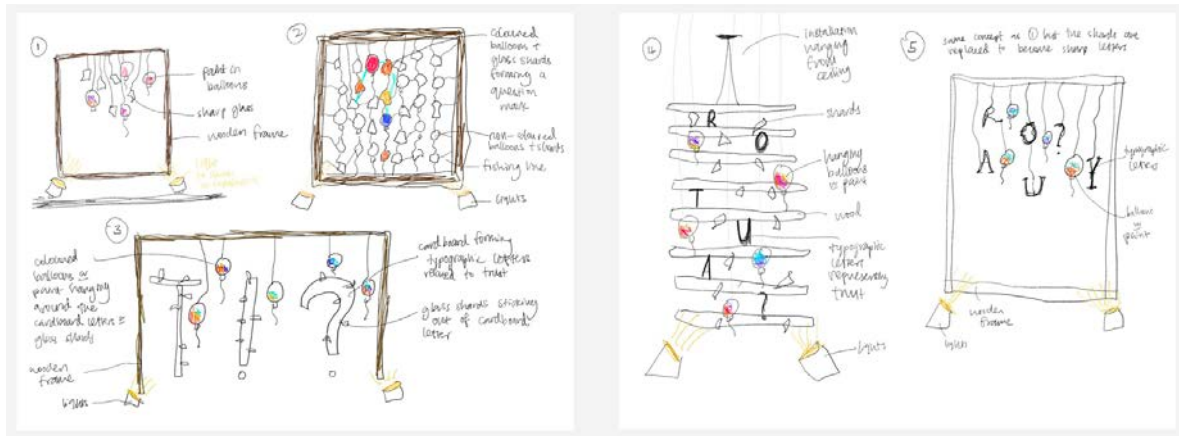 1
paint in
balloons
sharp glass
wooden frame
2
coloured
balloons +
glass shards
forming a
question
mark
non-coloured
balloons + shards
fishing line
lights
3
coloured
balloons w
paint hanging
around the
cardboard letters
glass shards
wooden
frame
lights
T ! ?
cardboard forming
typographic letters
related to trust
glass shards sticking
out of cardboard
letter
4
installation
hanging
from
ceiling
shards
hanging
balloons
w paint
wood
typographic
letters
representing
trust
lights
R
O
T
U
?
5
same concept as 1 but the shards are
replaced to become sharp letters
R O ?
U Y
typographic
letters
balloons
w
paint
wooden
frame
lights